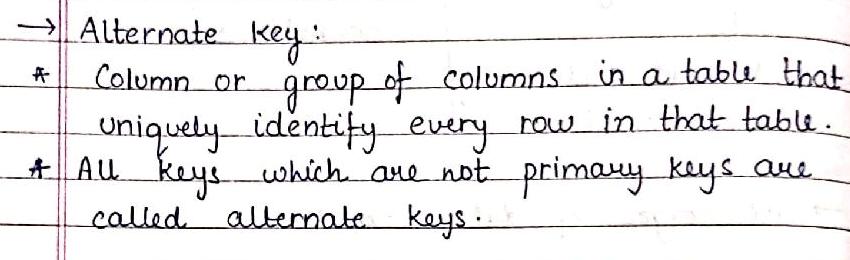 → Alternate key :
* Column or group of columns in a table that
uniquely identify every row in that table.
* All keys which are not primary keys are
called alternate keys.